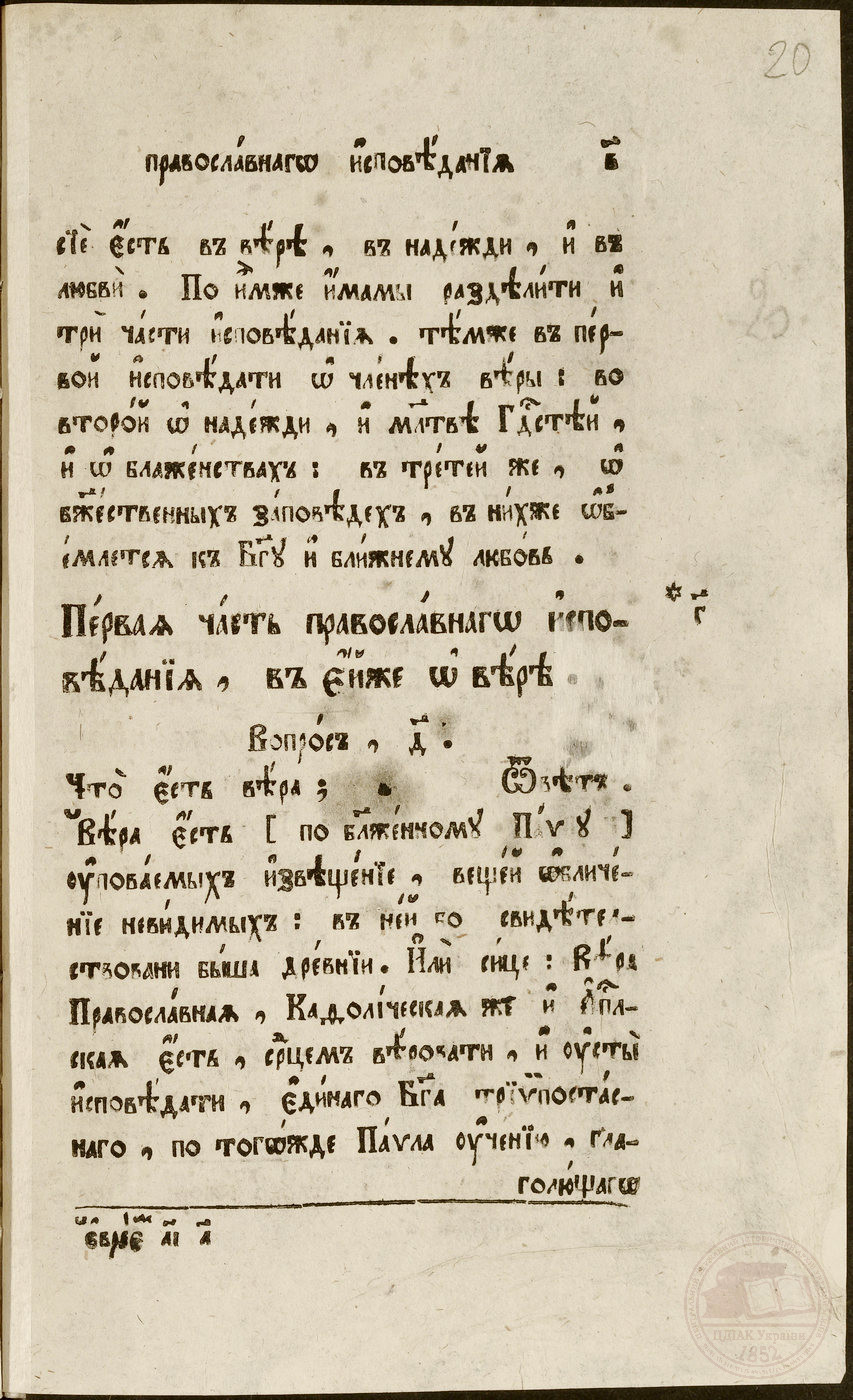 20
правосла́внагѡ и҆сповѣ́данїѧ в҃
сїѐ є҆́сть въ вѣ́рѣ , въ наде́жди , и҆ въ
любвѝ . По и҆̀мже и҆́мамы раздѣли́ти и҆
трѝ ча́сти и҆сповѣ́данїѧ . тѣ́мже въ пе́р-
вой и҆сповѣ́дати ѡ҆ чле́нѣхъ вѣ́ры : во
второ́й ѡ҆ наде́жди , и҆ мл҃твѣ Гдⷭ҇тѣй ,
и҆ ѡ҆ блаже́нствахъ : въ тре́тей же , ѡ҆
бж҃е́ственныхъ за́повѣдехъ , въ ни́хже ѡ҆б-
е́млетсѧ къ Бг҃ꙋ и҆ бли́жнемꙋ любо́вь .
Пе́рваѧ ча́сть правосла́внагѡ и҆спо-
вѣ́данїѧ , въ є҆́йже ѡ҆ вѣ́рѣ
* г҃
Вопро́съ , д҃ .
Что̀ є҆́сть вѣ́ра ; Ѿвѣтъ .
Вѣ́ра є҆́сть [ по бл҃же́нномꙋ ]
оу҆пова́емыхъ и҆звѣще́нїе , веще́й ѡ҆бличе́-
нїе неви́димыхъ : въ не́й бо свидѣ́тел-
ствовани бы́ша дре́внїи . И҆лѝ си́це : Вѣ́ра
Правосла́внаѧ , Каѳоли́ческаѧ же и҆ А҆пⷭ҇л-
скаѧ є҆́сть ,ср҃цемъ вѣ́ровати , и҆ оу҆сты̀
и҆сповѣ́дати , є҆ди́наго Бг҃а трїѵ̈поста́с-
наго , по тогѡ́жде Па́ѵла оу҆ченїю , гла-
голю́щагѡ
є҆вре́є а҃і а҃
ЦДІАК України
1852